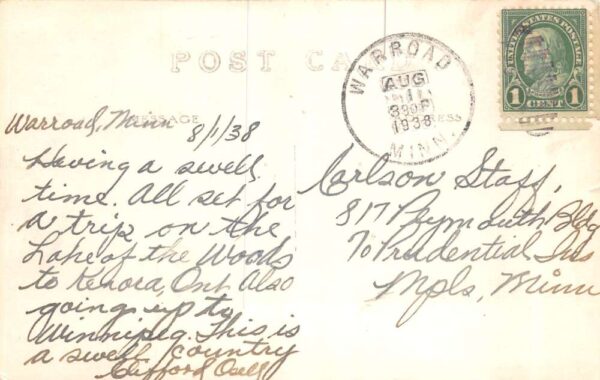 POST CA
WARROAD
AUG
1
330P
1938
MINN.
UNITED STATES POSTAGE
1 CENT 1
MESSAGE
Warroad, Minn 8/1/38
Having a swell
time. All set for
a trip on the
Lake of the Woods
to Kenora, Ont Also
going up to
Winnipeg. This is
a swell country
Clifford
Carlson Staff,
817 Plymouth Bldg
% Prudential Ins
Mpls, Minn